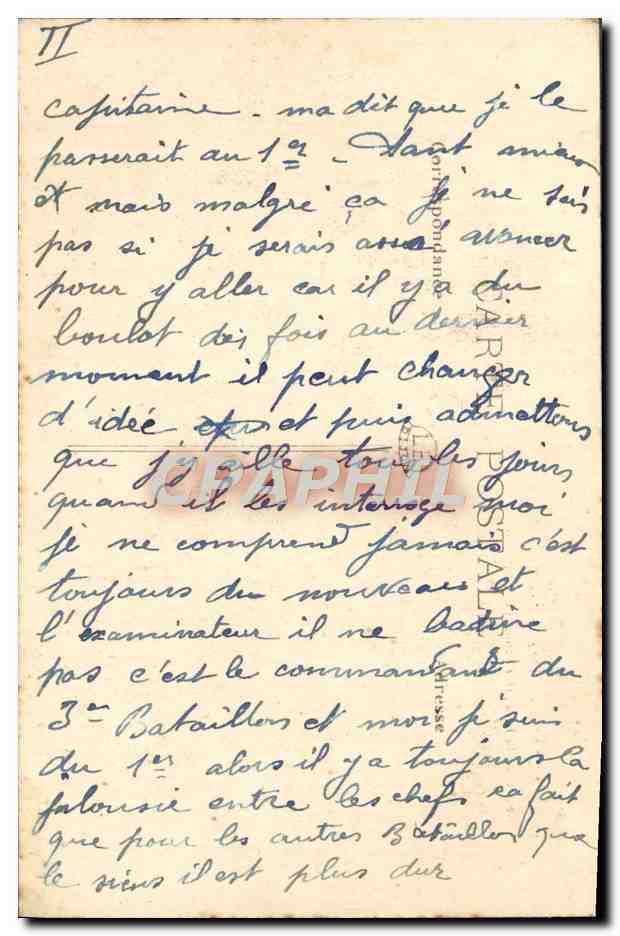 II
capitaine - ma dit que je le
passerait au 1er - tant mieux
et mais malgré ça je ne sais
pas si je serais assé avancer
pour y aller car il y a du
boulot des fois au dernier
moment il peut changer
d'idée et puis admettons
que j'y aille tous les jours
quand il les interroge moi
je ne comprend jamais c'est
toujours du nouveau et
l'examinateur il ne badine
pas c'est le commandant du
3em Bataillon et moi je suis
du 1er alors il y a toujours la
jalousie entre les chefs ca fait
que pour les autres Bataillon que
le siens il est plus dur
CARTE POSTALE
Correspondance
Adresse
CPAPHIL